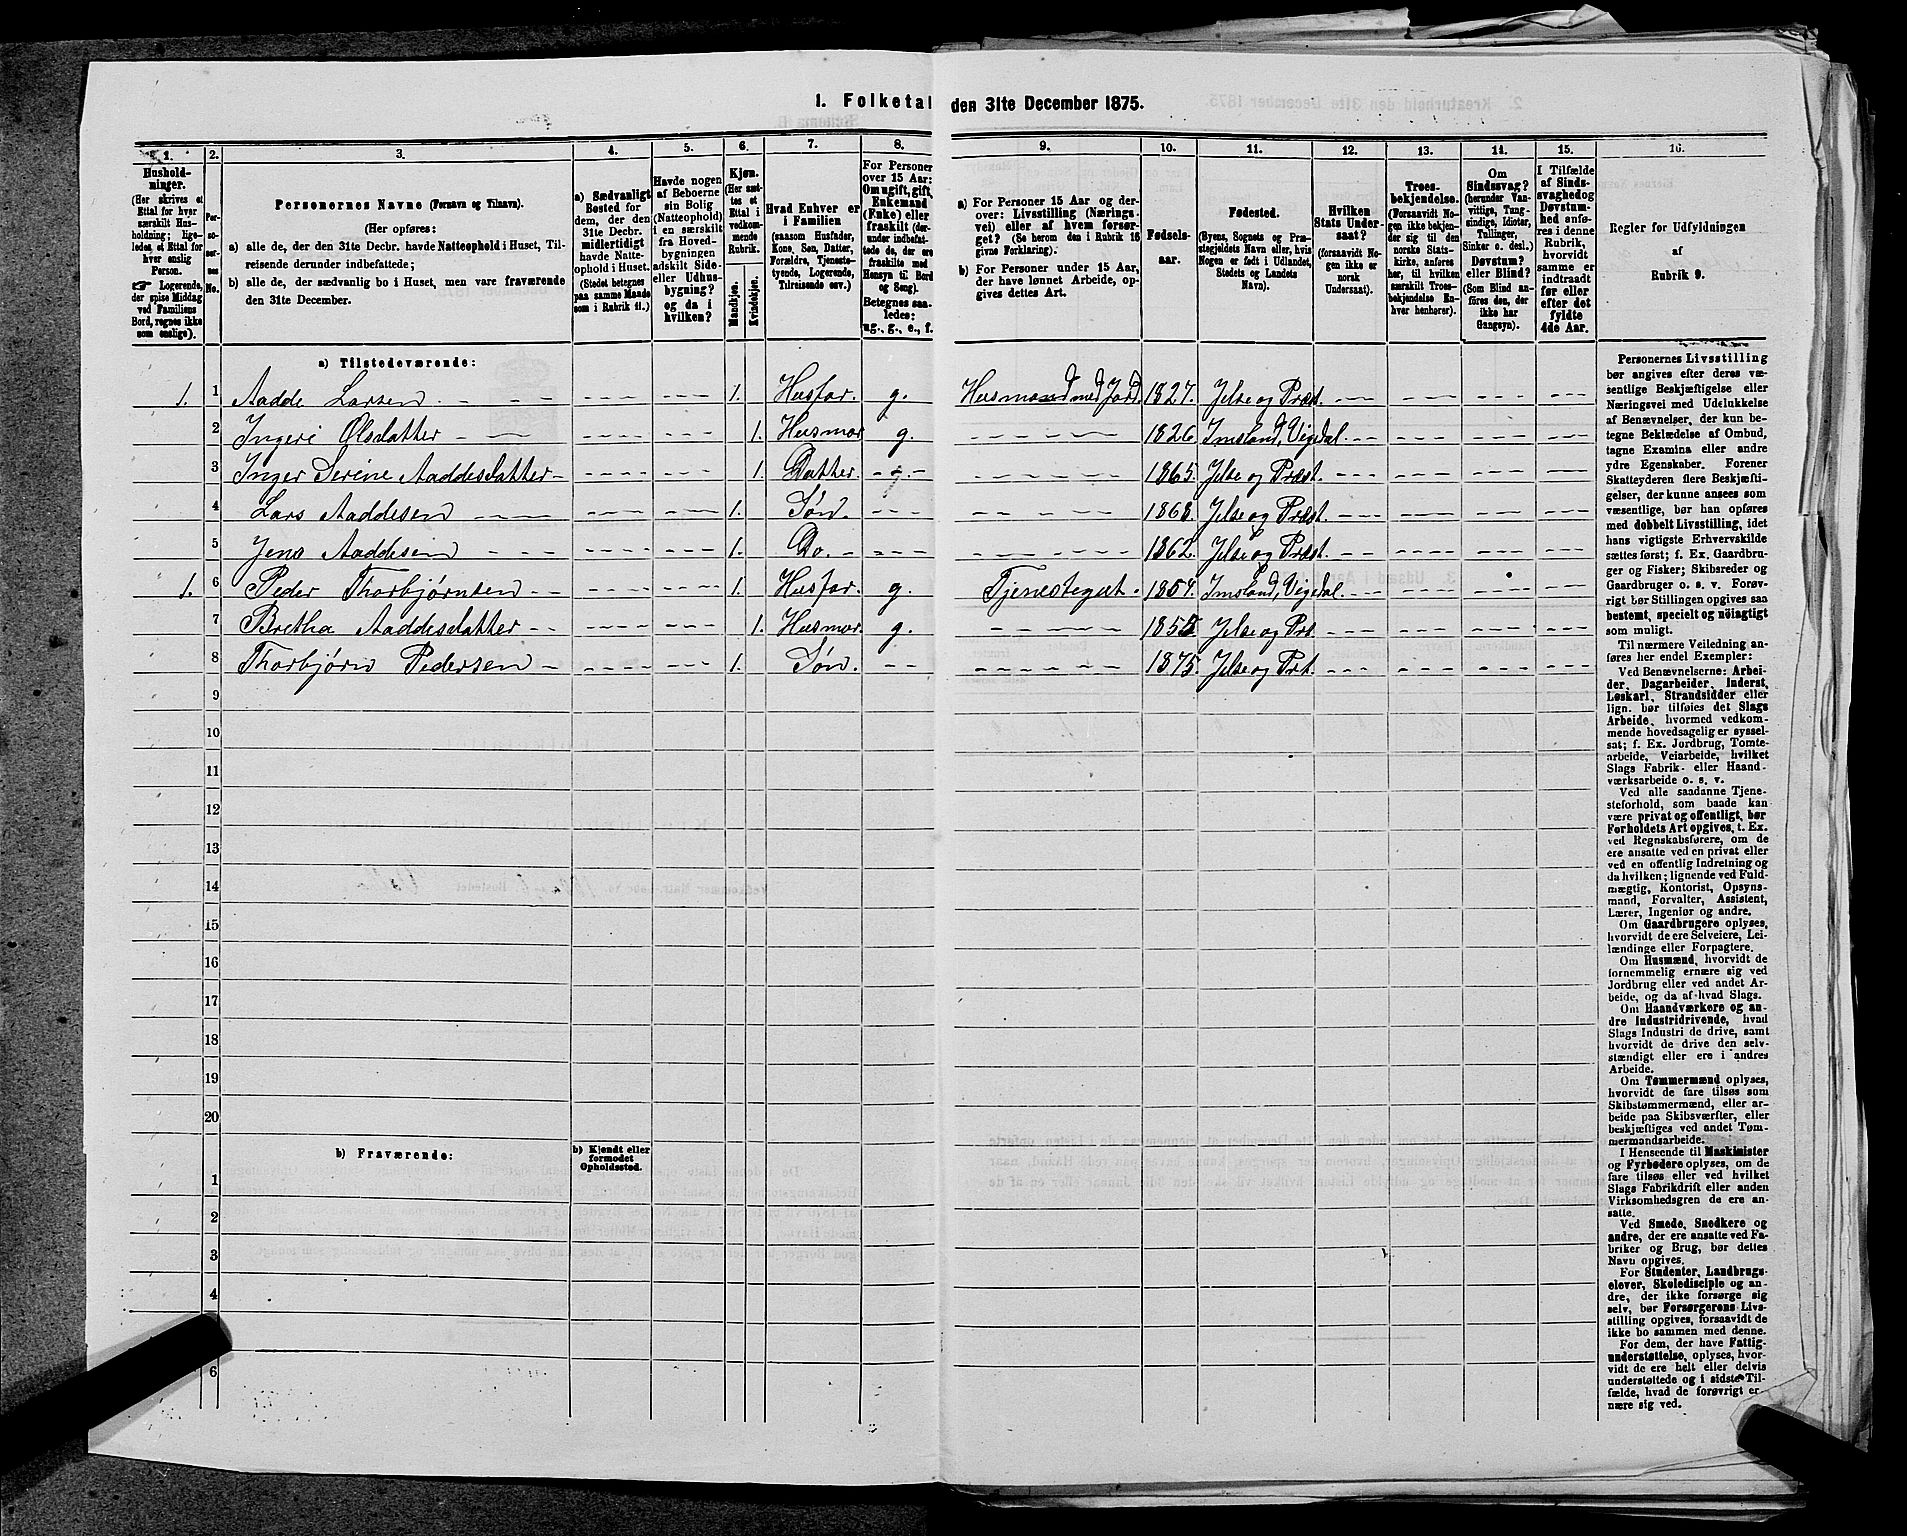 1. Folketal den 31te December 1875.
1. 2. 3. 4. 5. 6. 7. 8. 9. 10. 11. 12. 13. 14. 15. 16.
Husholdninger.
(Her skrives et Ettal for hver særskilt Husholdning; ligeledes et Ettal for hver enslig Person.
☞ Logerende, der spise Middag ved Familiens Bord, regnes ikke som enslige).
Personernes No.
Personernes Navne (Fornavn og Tilnavn).
(Her opføres:
a) alle de, der den 31te Decbr. havde Natteophold i Huset, Tilreisende derunder indbefattede;
b) alle de, der sædvanlig bo i Huset, men vare fraværende den 31te December.
a) Sædvanligt Bosted for dem, der den 31te Decbr. midlertidigt havde Natteophold i Huset. (Stedet betegnes paa samme Maade som i Rubrik 11.)
Havde nogen af Beboerne sin Bolig (Natteophold) i en særskilt fra Hovedbygningen adskilt Side- eller Udhusbygning? og da i hvilken?
Kjøn.
(Her sættes et Ettal i vedkommende Rubrik.
Mandkjøn. Kvindekjøn.
Hvad Enhver er i Familien
(saasom Husfader, Kone, Søn, Datter, Forældre, Tjenestetyende, Logerende, Tilreisende osv.)
For Personer over 15 Aar: Om ugift, gift, Enkemand (Enke) eller fraskilt (derunder indbefattede de, der ere fraskilte med Hensyn til Bord og Seng).
Betegnes saaledes: ug., g., e., f.
a) For Personer 15 Aar og derover: Livsstilling (Næringsvei) eller af hvem forsørget? (Se herom den i Rubrik 16 givne Forklaring).
b) For Personer under 15 Aar, der have lønnet Arbeide, opgives dettes Art.
Fødselsaar.
Fødested.
(Byens, Sognets og Præstegjeldets Navn eller, hvis Nogen er født i Udlandet, Stedets og Landets Navn).
Hvilken Stats Undersaat?
(forsaavidt Nogen ikke er norsk Undersaat).
Troesbekjendelse.
(Forsaavidt Nogen ikke bekjender sig til den norske Statskirke, anføres her, til hvilken særskilt Troesbekjendelse Enhver henhører).
Om Sindssvag? (herunder Vanvittige, Tungsindige, Idioter, Tullinger, Sinker o. desl.) Døvstum? eller Blind? (Som Blind anføres den, der ikke har Gangsyn).
I Tilfælde af Sindssvaghed og Døvstumhed anføres i denne Rubrik, hvorvidt samme er indtraadt før eller efter det fyldte 4de Aar.
Regler for Udfyldningen af Rubrik 9.
a) Tilstedeværende:
1. 1 Aadde Larsen 1. Husfar. g. Husmand med Jord. 1827. Jelse og Præst.
2 Ingeri Olsdatter 1. Husmor g. 1826 Imsland, Vigedal.
3 Inger Serine Aaddesdatter 1. Datter. 1865. Jelse og Præst.
4 Lars Aaddesen 1. Søn. 1868. Jelse og Præst.
5 Jens Aaddesen 1. Do. 1862. Jelse og Præst.
1. 6 Peder Thorbjørnsen 1. Husfar. g. Tjenestegut. 1854. Imsland, Vigedal.
7 Bretha Aaddesdatter 1. Husmor. g. 1855 Jelse og Prt.
8 Thorbjørn Pedersen 1. Søn. 1875. Jelse og Prt.
9
10
11
12
13
14
15
16
17
18
19
20
b) Fraværende:
b) Kjendt eller formodet Opholdssted.
1
2
3
4
6
Personernes Livsstilling
bør angives efter deres væ-
sentlige Beskjæftigelse eller
Næringsvei med Udelukkelse
af Benævnelser, der kun be-
tegne Beklædelse af Ombud,
tagne Examina eller andre
ydre Egenskaber. Forener
Skatteyderen flere Beskjæfti-
gelser, der kunne ansees som
væsentlige, bør han opføres
med dobbelt Livsstilling, idet
hans vigtigste Erhvervskilde
sættes først; f. Ex. Gaardbru-
ger og Fisker; Skibsreder og
Gaardbruger o. s. v. Forøv-
rigt bør Stillingen opgives saa
bestemt, specielt og nöiagtigt
som muligt.
Til nærmere Veiledning an-
føres her endel Exempler:
Ved Benævnelserne: Arbei-
der, Dagarbeider, Inderst,
Løskarl, Strandsidder eller
lign. bør tilføies det Slags
Arbeide, hvormed vedkom-
mende hovedsagelig er syssel-
sat; f. Ex. Jordbrug, Tomte-
arbeide, Veiarbeide, hvilket
Slags Fabrik- eller Haand-
værksarbeide o. s. v.
Ved alle saadanne Tjene-
steforhold, som baade kan
være privat og offentligt, bør
Forholdets Art opgives, t. Ex.
ved Regnskabsførere, om de
ere ansatte ved en privat eller
ved en offentlig Indretning og
da hvilken; lignende ved Fuld-
mægtig, Kontorist, Opsyns-
mand, Forvalter, Assistent,
Lærer, Ingeniør og andre.
Om Gaardbrugere oplyses,
hvorvidt de ere Selveiere, Lei-
lændinge eller Forpagtere.
Om Husmænd, hvorvidt de
fornemmelig ernære sig ved
Jordbrug eller ved andet Ar-
beide, og da af hvad Slags.
Om Haandværkere og an-
dre Industridrivende, hvad
Slags Industri de drive, samt
hvorvidt de drive den selv-
stændigt eller ere i andres
Arbeide.
Om Tømmermænd oplyses,
hvorvidt de fare tilsøs som
Skibstømmermænd, eller ar-
beide paa Skibsværfter, eller
beskjæftiges ved andet Tøm-
mermandsarbeide.
I Henseende til Maskinister
og Fyrbødere oplyses, om de
fare tilsøs eller ved hvilket
Slags Fabrikdrift eller anden
Virksomhedsgren de ere an-
satte.
Ved Smede, Snedkere og
andre, der ere ansatte ved Fa-
briker og Brug, bør dettes
Navn opgives.
For Studenter, Landbrugs-
elever, Skoledisciple og an-
dre, der ikke forsørge sig
selv, bør Forsørgerens Livs-
stilling opgives, forsaavidt de
ikke bo sammen med denne.
For dem, der have Fattig-
understøttelse, oplyses, hvor-
vidt de ere helt eller delvis
understøttede og i sidste Til-
fælde, hvad de forøvrigt er-
nære sig ved.